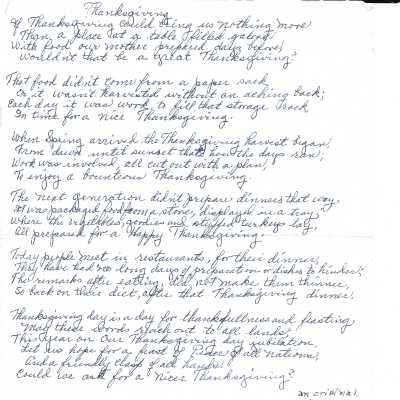 Thanksgiving
If Thanksgiving could bring us nothing more
Than a place at a table filled galore
With food our mother prepared days before,
Wouldn't that be a Great Thanksgiving?
That food didn't come from a paper sack,
Or it wasn't harvested without an aching back;
Each day it was work to fill that storage rack
In time for a nice Thanksgiving.
When Spring arrived the Thanksgiving harvest began,
From dawn until sunset that's how the days ran;
Work was involved, all cut out with a plan,
To enjoy a bounteous Thanksgiving.
The next generation didn't prepare dinners that way,
It was packaged food from a store, displayed in a tray
Where the vegetables, and stuffed turkeys lay,
All prepared for a Happy Thanksgiving.
Today people meet in restaurants, for their dinner,
They have had no long days of preparation or dishes to hinder;
The remarks after eating, did not make them thinner,
So back on their diet, after that Thanksgiving dinner.
Thanksgiving day is a day for thankfullness and feasting
May these words reach out to all lands.
This year on Our Thanksgiving day jubilation,
Let us hope for a feast of Peace of all nations,
And a friendly clasp of all hands.
Could we ask for a Nicer Thanksgiving?
an original